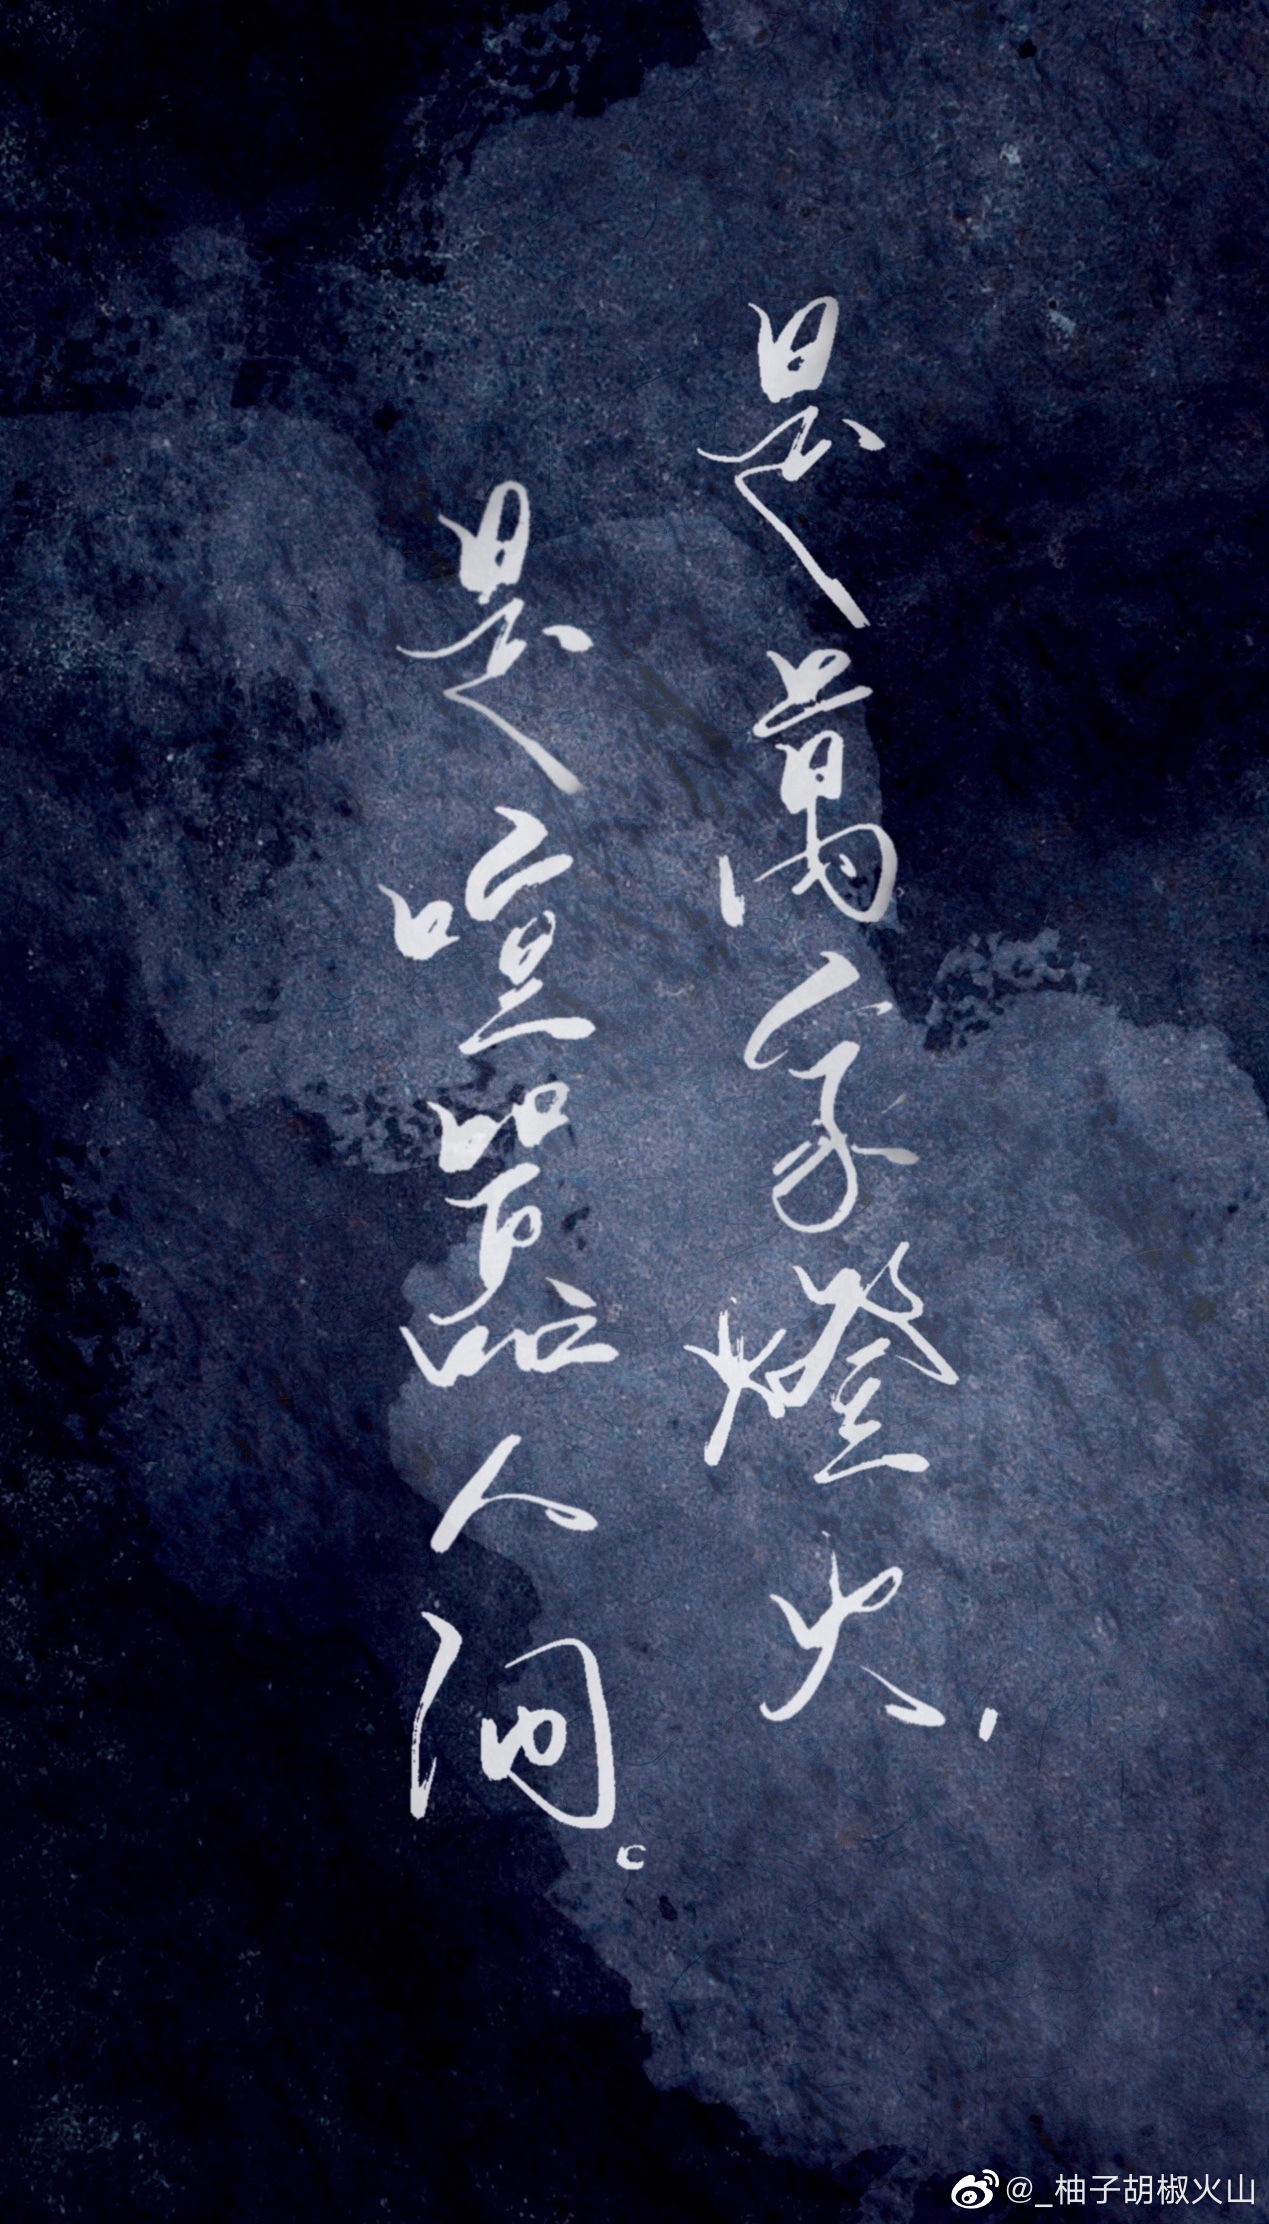 是萬家燈火，
是喧囂人间。
@_柚子胡椒火山